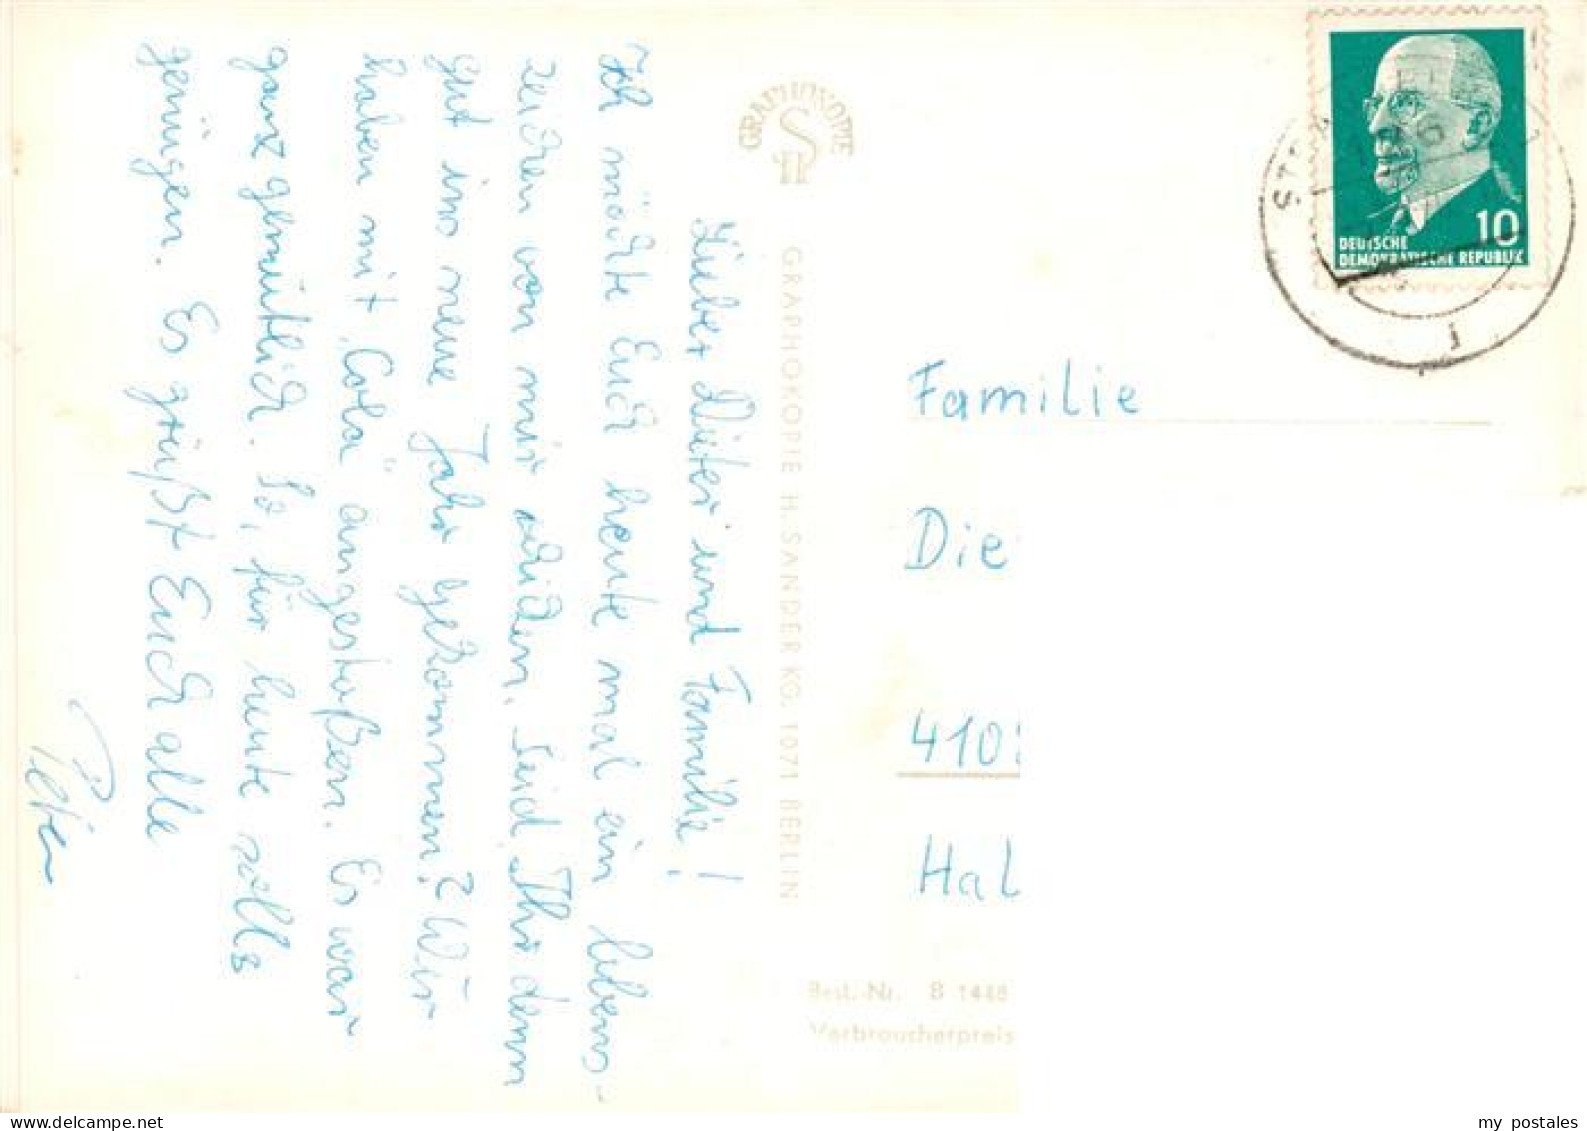 Lieber Dieter und Familie!
Ich möchte Euch heute mal ein lebens-
zeichen von mir schicken. Seid Ihr denn
gut ins neue Jahr gekommen? Wir
haben mit „Cola" angestoßen. Es war
ganz gemütlich. So, für heute solls
genügen. Es grüßt Euch alle
Peter
GRAPHOKOPIE
GRAPHOKOPIE H. SANDER KG. 1071 BERLIN
10
DEUTSCHE
DEMOKRATISCHE REPUBLIK
Familie
Die
410
Hal
Best.-Nr. B 1448
Verbraucherpreis
my postales